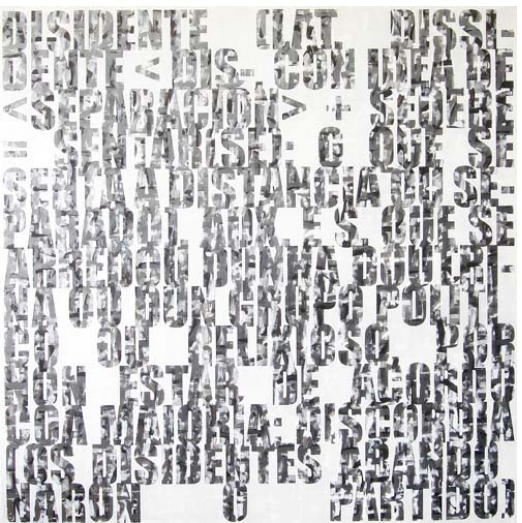 DISIDENTE (LAT. DISSI-
DENTE < DIS-, CON IDEA DE
<SEPARACIÓN> + SEDERE
= SENTAR(SE): O QUE SE
SENTA A DISTANCIA OU SE-
PARADO). ADX. E S. QUE SE
ARREDOU DUNHA DOUTRI-
NA OU DUN GRUPO POLÍTI-
CO OU RELIXIOSO, POR
NON ESTAR DE ACORDO
COA MAIORÍA: DISCORDIA
(OS DISIDENTES ABANDO-
NARON O PARTIDO)